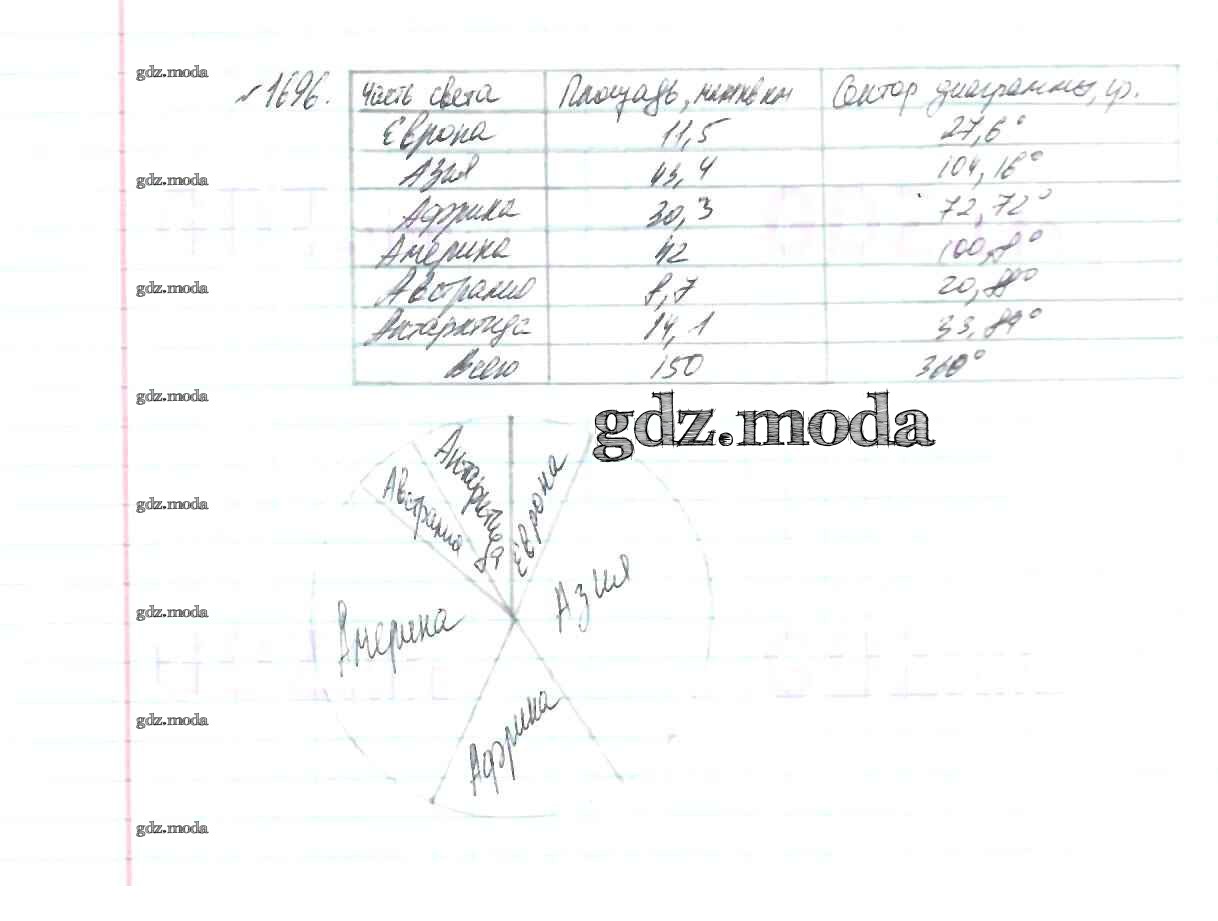 gdz.moda
№1696.
Часть света Площадь, млн кв км Сектор диаграммы, гр.
Европа 11,5 27,6°
Азия 43,4 104,16°
gdz.moda
Африка 30,3 72,72°
Америка 42 100,8°
Австралия 8,7 20,88°
gdz.moda
Антарктида 14,1 33,84°
Всего 150 360°
gdz.moda
gdz.moda
Австралия
Антарктида
Европа
gdz.moda
Азия
gdz.moda
Америка
Африка
gdz.moda
gdz.moda